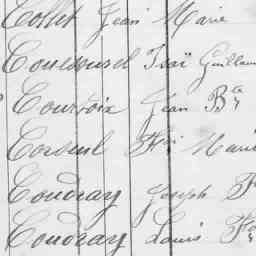 Collet Jean Marie
Couessurel Guillaum
Courtoix Jean Bte
Corseul Fçs Marie
Coudray Joseph F
Coudray Louis F